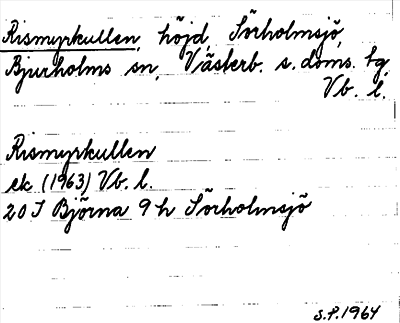 Rismyrkullen, höjd, Sörholmsjö,
Bjurholms sn, Västerb. s. doms. tg,
Vb. l.
Rismyrkullen
ek (1963) Vb. l.
20 J Björna 9 h Sörholmsjö
S.P. 1964